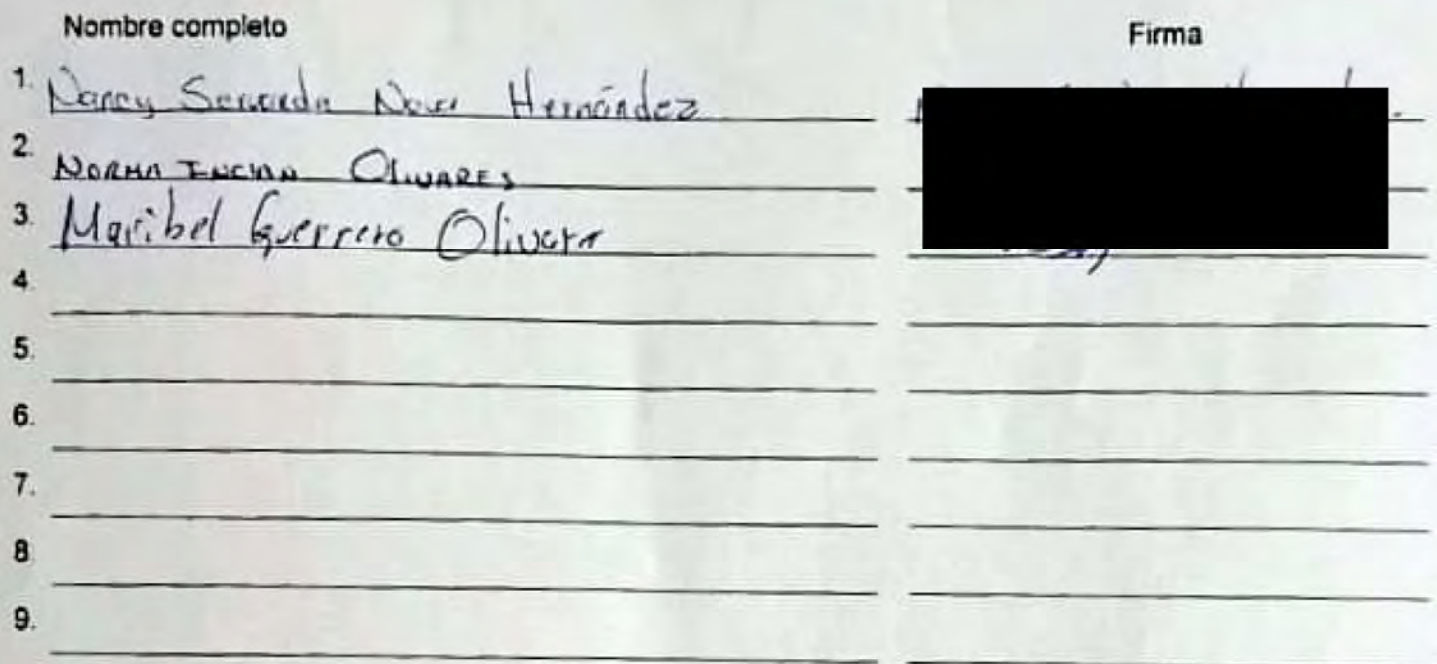 Nombre completo Firma
1. Nancy Hernández
2. NORMA OLIVARES
3. Maribel Guerrero Olivera
4.
5.
6.
7.
8
9.